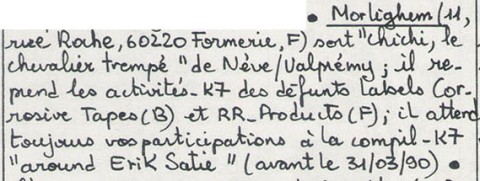 • Morlighem (11,
rue Roche, 60220 Formerie, F) sort "Chichi, le
chevalier trempé" de Nève/Valprémy ; il re-
prend les activités-K7 des défunts labels Cor-
rosive Tapes (B) et RR_Products (F) ; il attend
toujours vos participations à la compil-K7
"around Erik Satie" (avant le 31/03/90) •